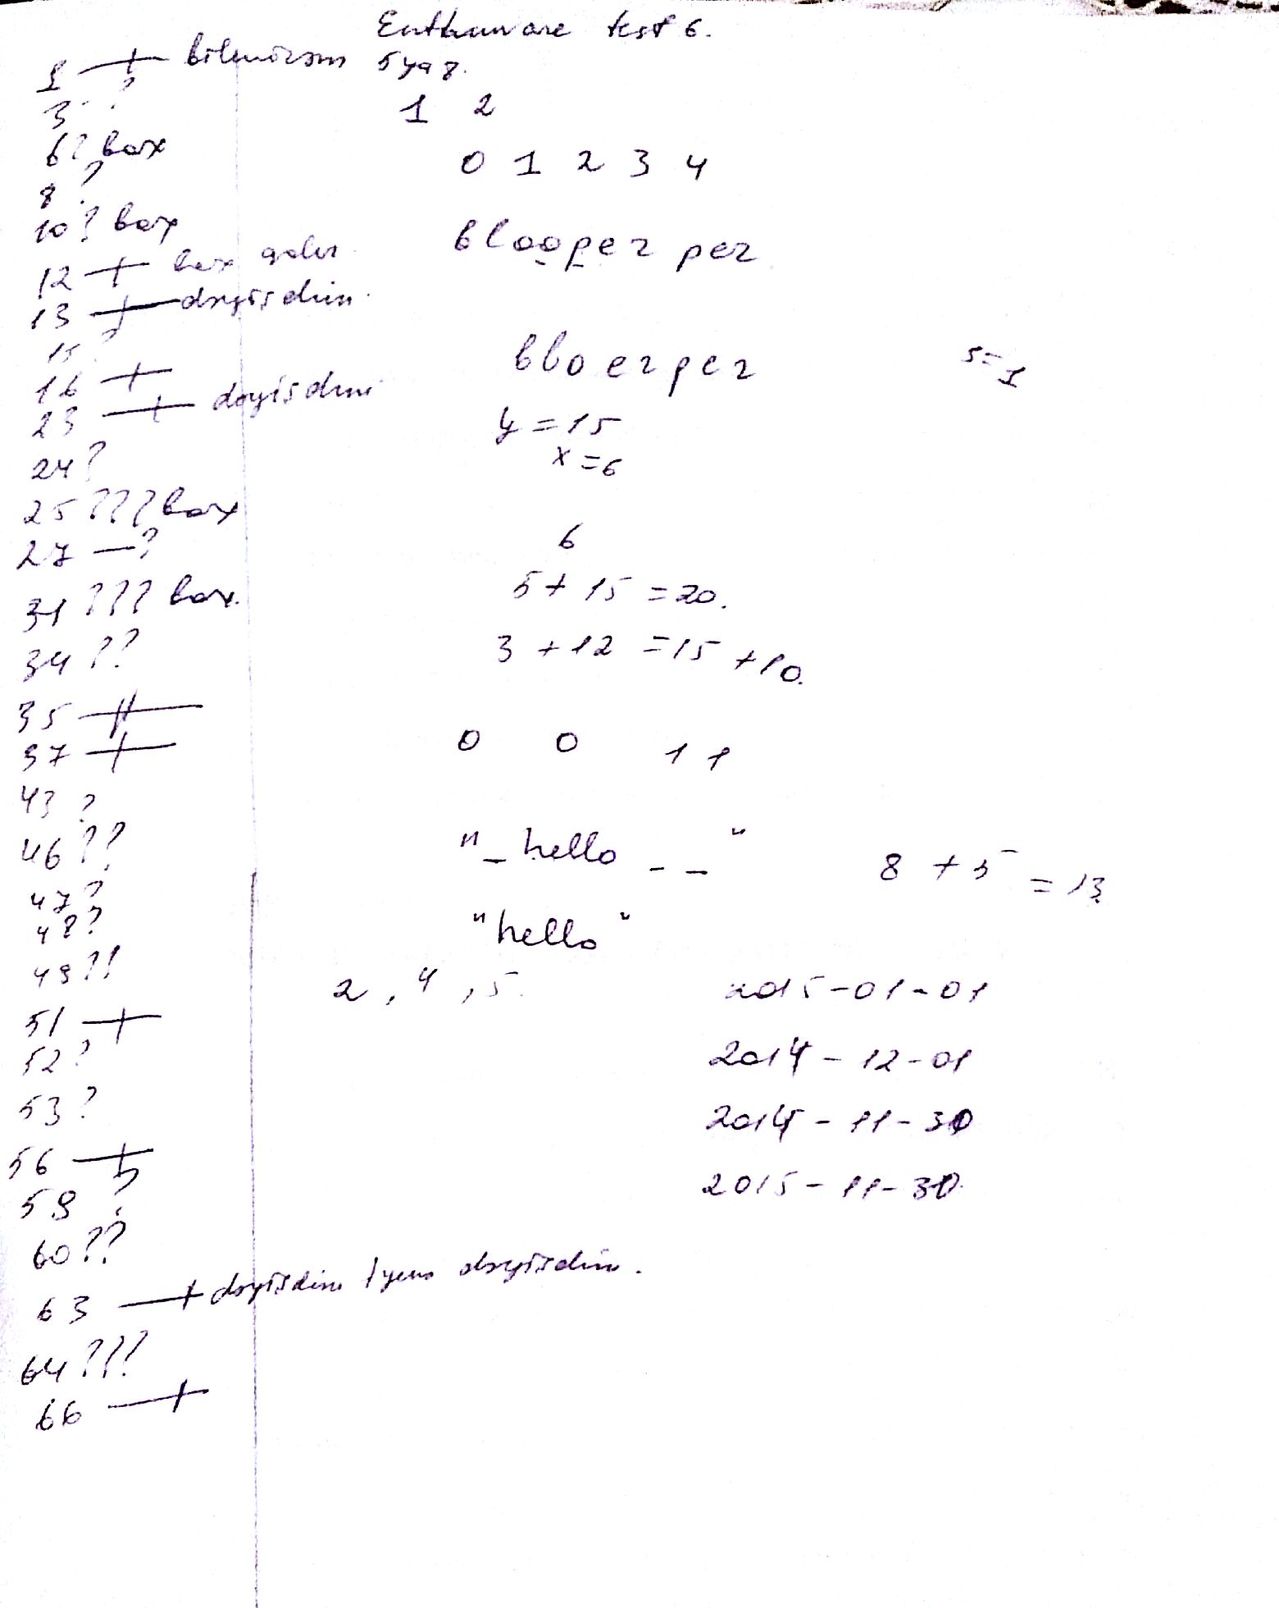 Enthuware test 6.
1 + bilmirəm 5 ya 8.
3 ?
1 2
6? bax
0 1 2 3 4
8 ?
10? bax
blooper per
12 + bax
13 + dəyişdim.
15 ?
bloerper
s=1
16 +
23 + dəyişdim
y = 15
x = 6
24?
25??? bax
27 —?
6
5 + 15 = 20.
31??? bax.
34??
3 + 12 = 15 + 10.
35 +
37 +
0 0 1 1
43 ?
46??
"_hello _ _"
8 + 5 = 13
47?
48?
"hello"
49??
2, 4, 5.
2015-01-01
51 +
52?
2014-12-01
53?
2014-11-30
56 +
2015-11-30
59 ?
60??
63 —+ dəyişdim yenə dəyişdim.
64???
66 —+